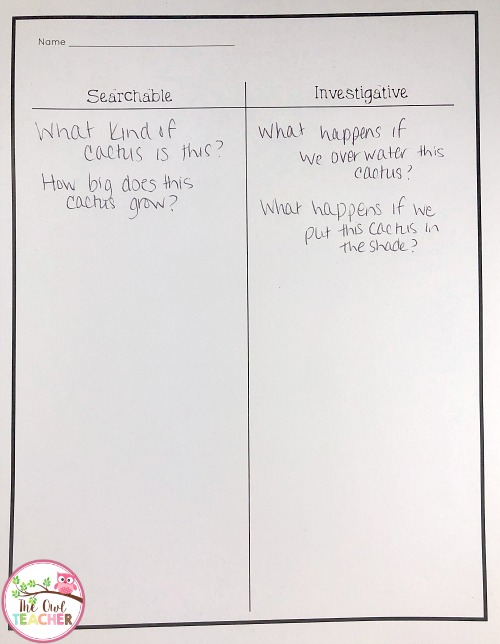 Name
Searchable
Investigative
What kind of
cactus is this?
How big does this
cactus grow?
What happens if
we over water this
cactus?
What happens if we
put this cactus in
the shade?
The Owl
TEACHER